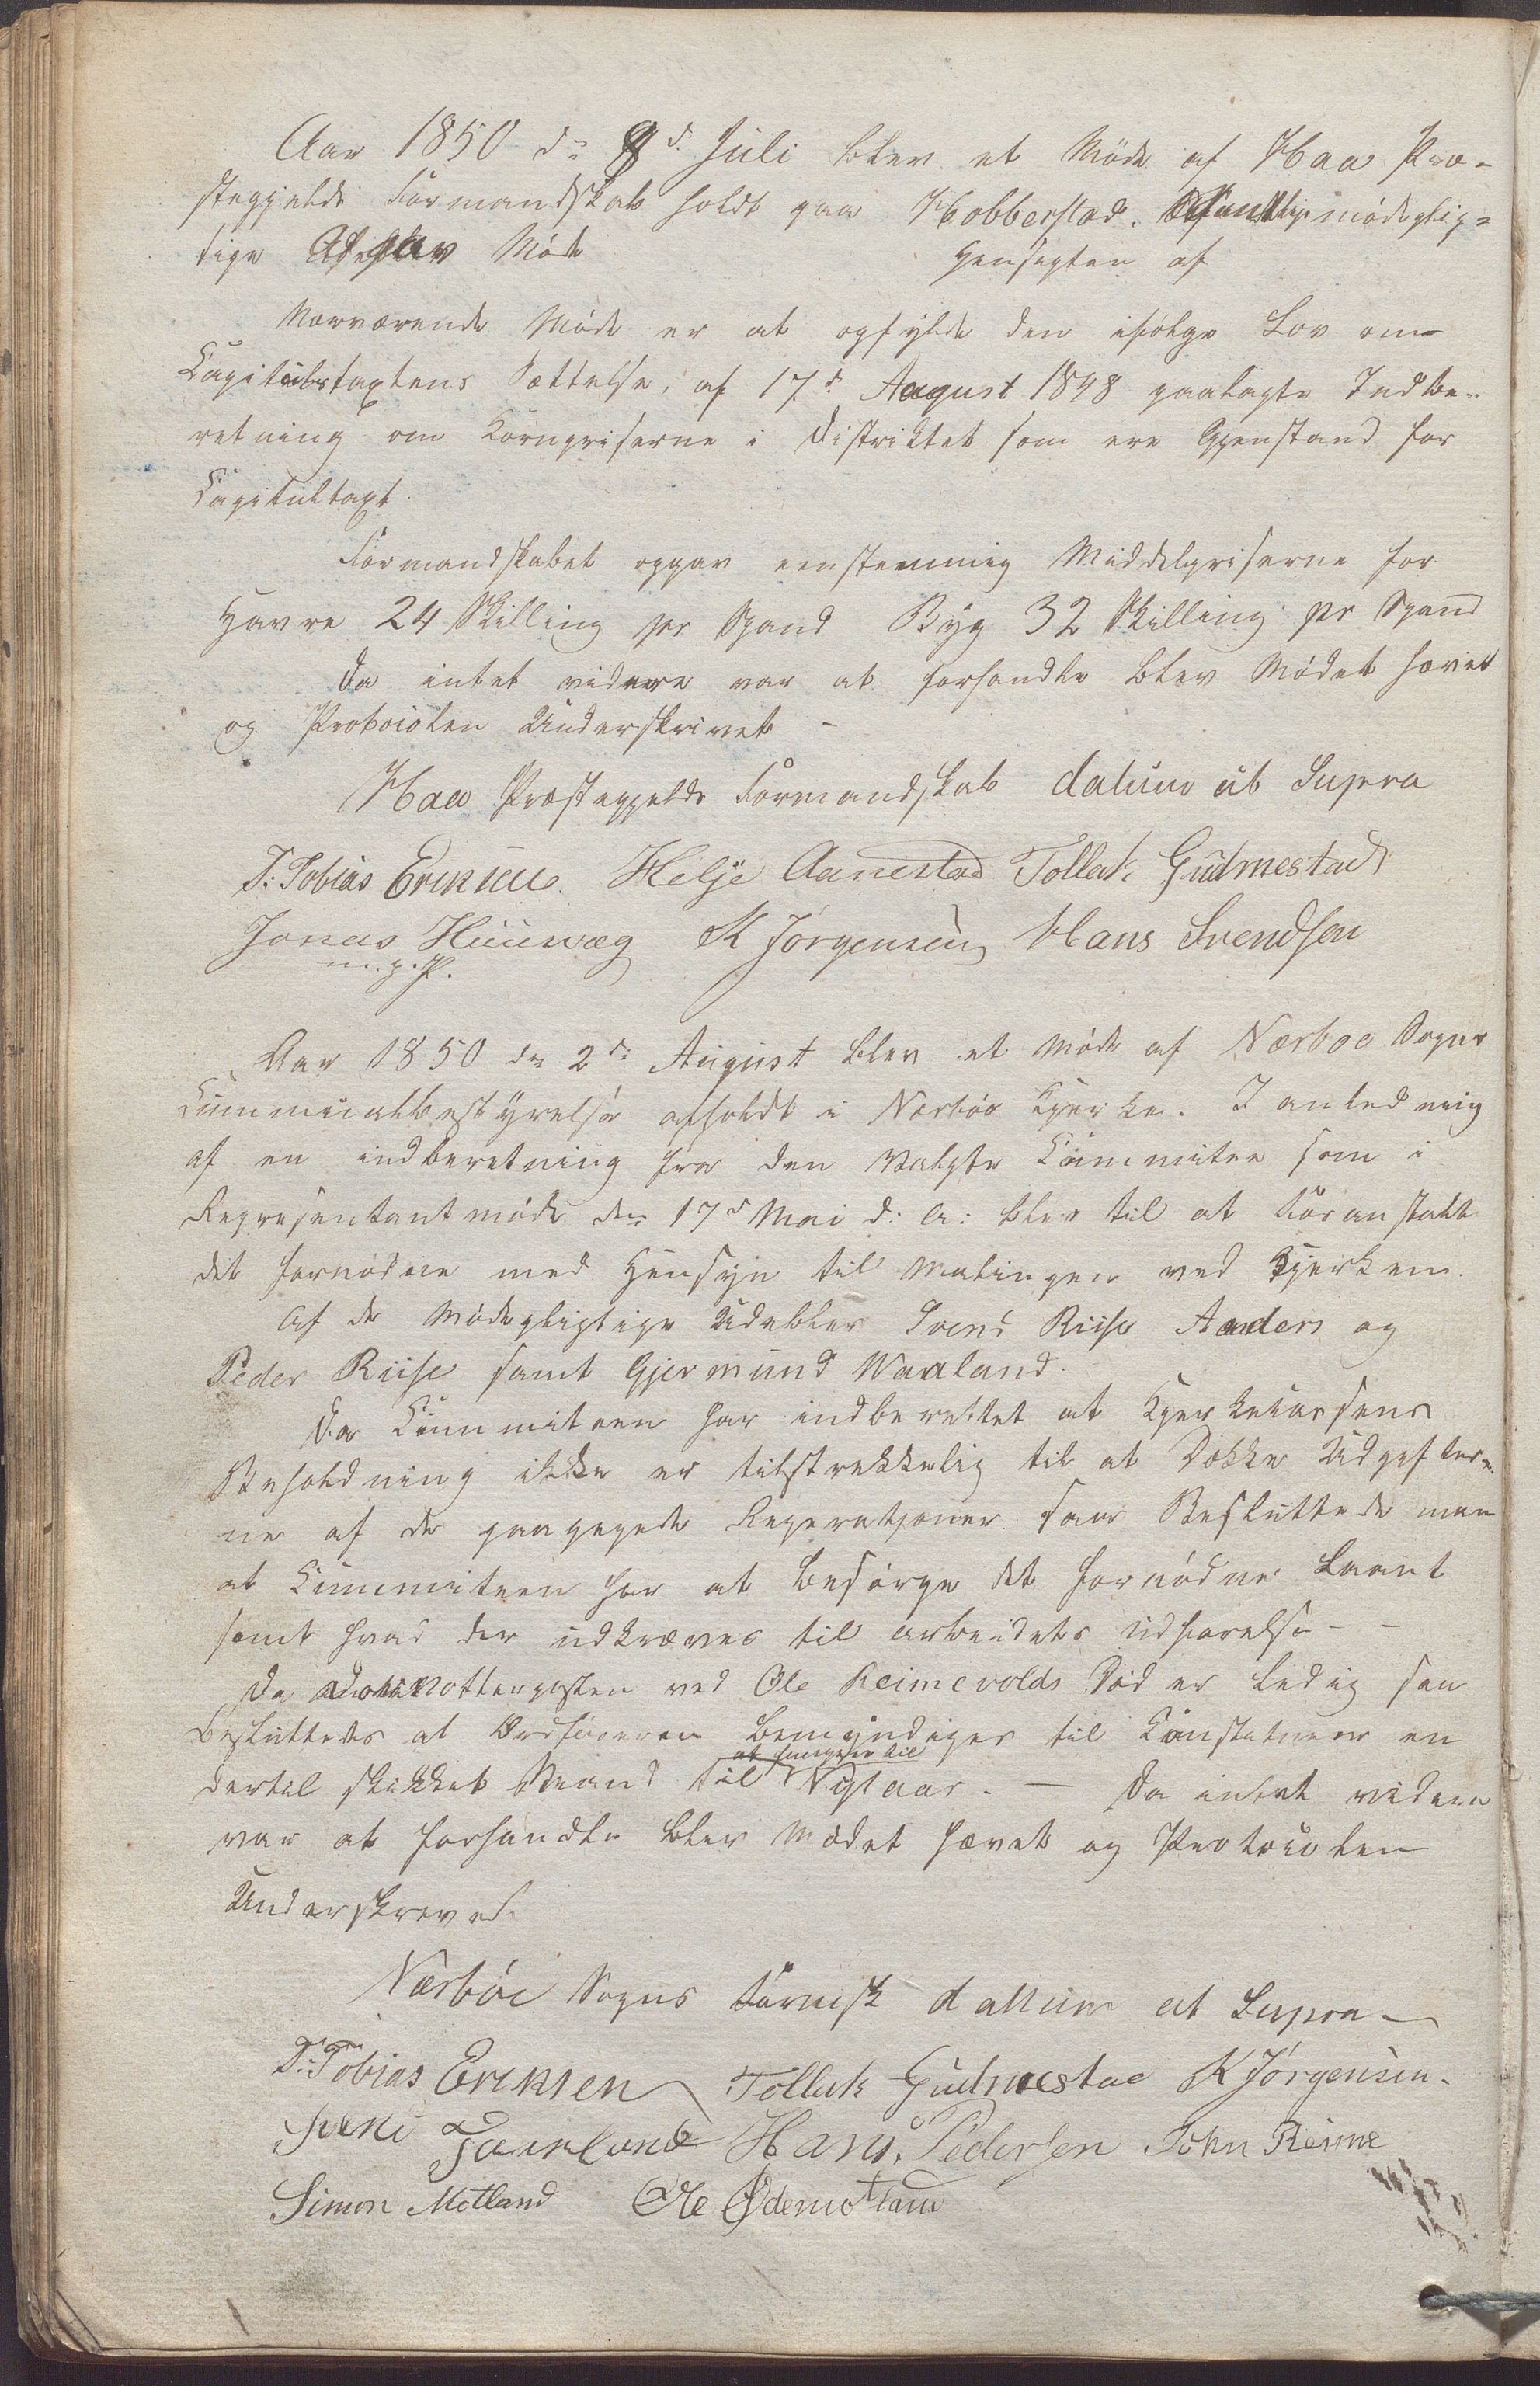 Aar 1850 d: 8d Juli blev et Møde af Haa Præ-
stegjelds Formandskab holdt paa Hobberstad. Samtlige mødeplig-
tige gav Møde Hensigten af
Nærværende Møde er at opfylde den ifølge Lov om
Capitulstaxtens Sættelse, af 17d August 1848 paalagte Indbe-
retning om Kornpriserne i Distriktet som ere Gjenstand for
Capitultaxt.
Formandskabet opgav eenstemmig Middelpriserne for
Havre 24 Skilling pr Spand Byg 32 Skilling pr Spand
Da intet videre var at forhandle blev Mødet hævet
og Protocolen Underskrivet -
Haa Præstegjelds Formandskab datum ut Supra
T: Tobias Eriksen. Helje Aanestad Tollak Gudmestad
Jonas Hüüwæg K Jørgensen Hans Svendsen
m.p.P.
Aar 1850 den 2d: August blev et Møde af Nærboe Sogns
Cummunalbestyrelse afholdt i Nærbøe Kjerke. I anledning
af en indberetning fra den Valgte Cummitee som i
Representantmøde den 17d Mai d: A: blev til at Foranstalte
det fornødne med Hensyn til Malingen ved Kjerken.
Af de Mødepligtige Udeblev Svend Riise Anders og
Peder Riise samt Gjermund Waaland.
Da Cummiteen har indberettet at Kjerkecassens
Beholdning ikke er tilstrekkelig til at Dekke Udgifter-
ne af de paagegede Reperatjoner saa Besluttede man
at Cummiteen har at besørge det fornødne Laant
samt hvad der udkræves til arbeidets Udførelse - -
Da votterposten ved Ole Reimevolds Død er ledig saa
besluttedes at Ordføreren bemyndiges til Constituere en
dertil skikket Mand til Nytaar. — Da intet videre
at fungere til
var at forhandle blev Mødet hævet og Protocolen
Underskrevet
Nærbøe Sogns Formsk dattum ut Supra -
T: Tobias Eriksen Tollak Gudmestad K Jørgensen.
Hans Pedersen John Reime
Simon Motland Ole Ødemotland